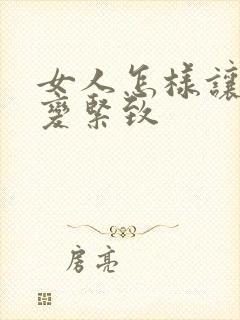 女人怎樣讓
變緊致
房亮